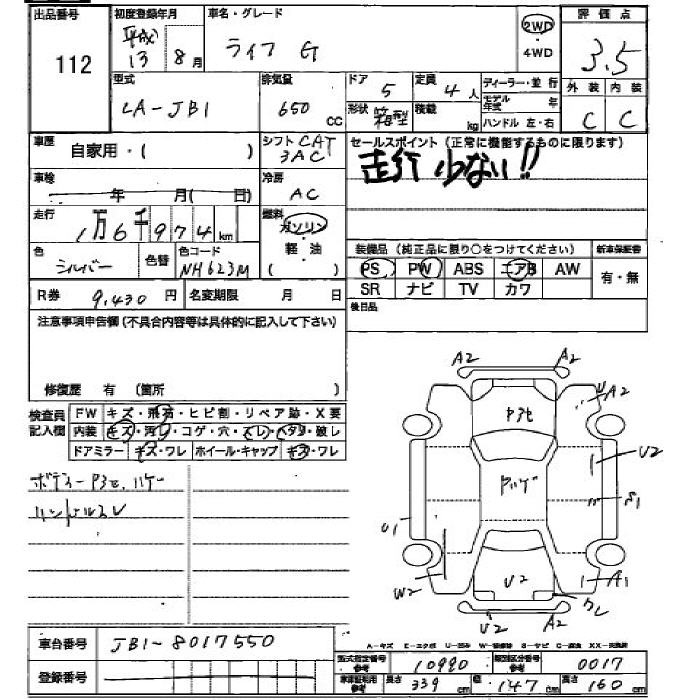 出品番号 初度登録年月 車名・グレード 評価点
112 平成 13 8月 ライフ G 2WD・4WD 3.5
型式 排気量 ドア 定員 ディーラー・並行 外装 内装
LA-JB1 650 CC 5 4人 モデル年式 年 C C
形状 箱型 積載 kg ハンドル 左・右
車歴 自家用・( ) シフト CAT 3AC セールスポイント(正常に機能するものに限ります)
走行少ない!!
車検 年 月( 日) 冷房 AC
走行 1万6千974km 燃料 ガソリン・軽油 ( )
色 シルバー 色替 色コード NH623M
装備品(純正品に限り○をつけてください) 新車保証書
PS PW ABS エアB AW 有・無
SR ナビ TV カワ
R券 9,430円 名変期限 月 日 後日品
注意事項申告欄(不具合内容等は具体的に記入して下さい)
修復歴 有 (箇所 )
検査員記入欄 FW キズ・飛石・ヒビ割・リペア跡・X要
内装 キズ・汚レ・コゲ・穴・スレ・ヘタリ・破レ
ドアミラー キズ・ワレ ホイール・キャップ キズ・ワレ
ボディーP3セ、ハゲ
ハンドルスレ
A2 A2
A2
P3セ
U2
Pハゲ
S1
U1
W2 U2 A1
U2 A2
A-キズ E-エクボ U-凹み
車台番号 JB1-8017550
登録番号
型式指定番号 参考 10990 類別区分番号 参考 0017
長さ 339cm 幅 147cm 高さ 160cm